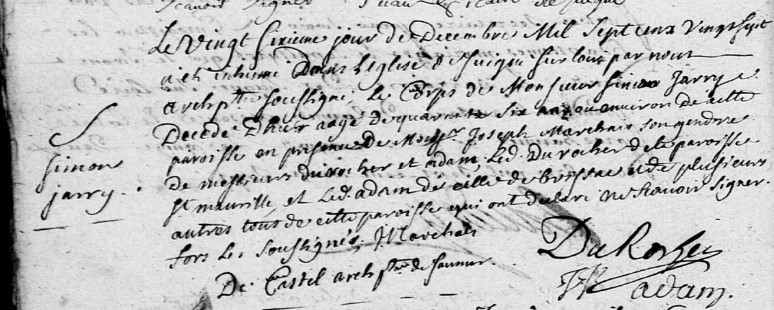 Le Vingt Sixieme jour de Decembre Mil Sept cens Vingt sept
a eté inhumé Dans l'Eglise de Juigné sur loire par nous
archptre soussigné Le Corps de Monsieur simon Jarry
Decedé D'hier aagé de quarente six ans ou environ de cette
paroisse en presence de Joseph Marchais son gendre
De messieurs durocher et adam Led. Durocher de la paroisse
St maurille et Led. adam de celle de Brissac et de plusieurs
autres tous de cette paroisse qui ont declaré ne sçavoir signer
fors les soussignés Marchais
simon
jarry.
DuRocher
De Castel archptre de saumur.
adam.